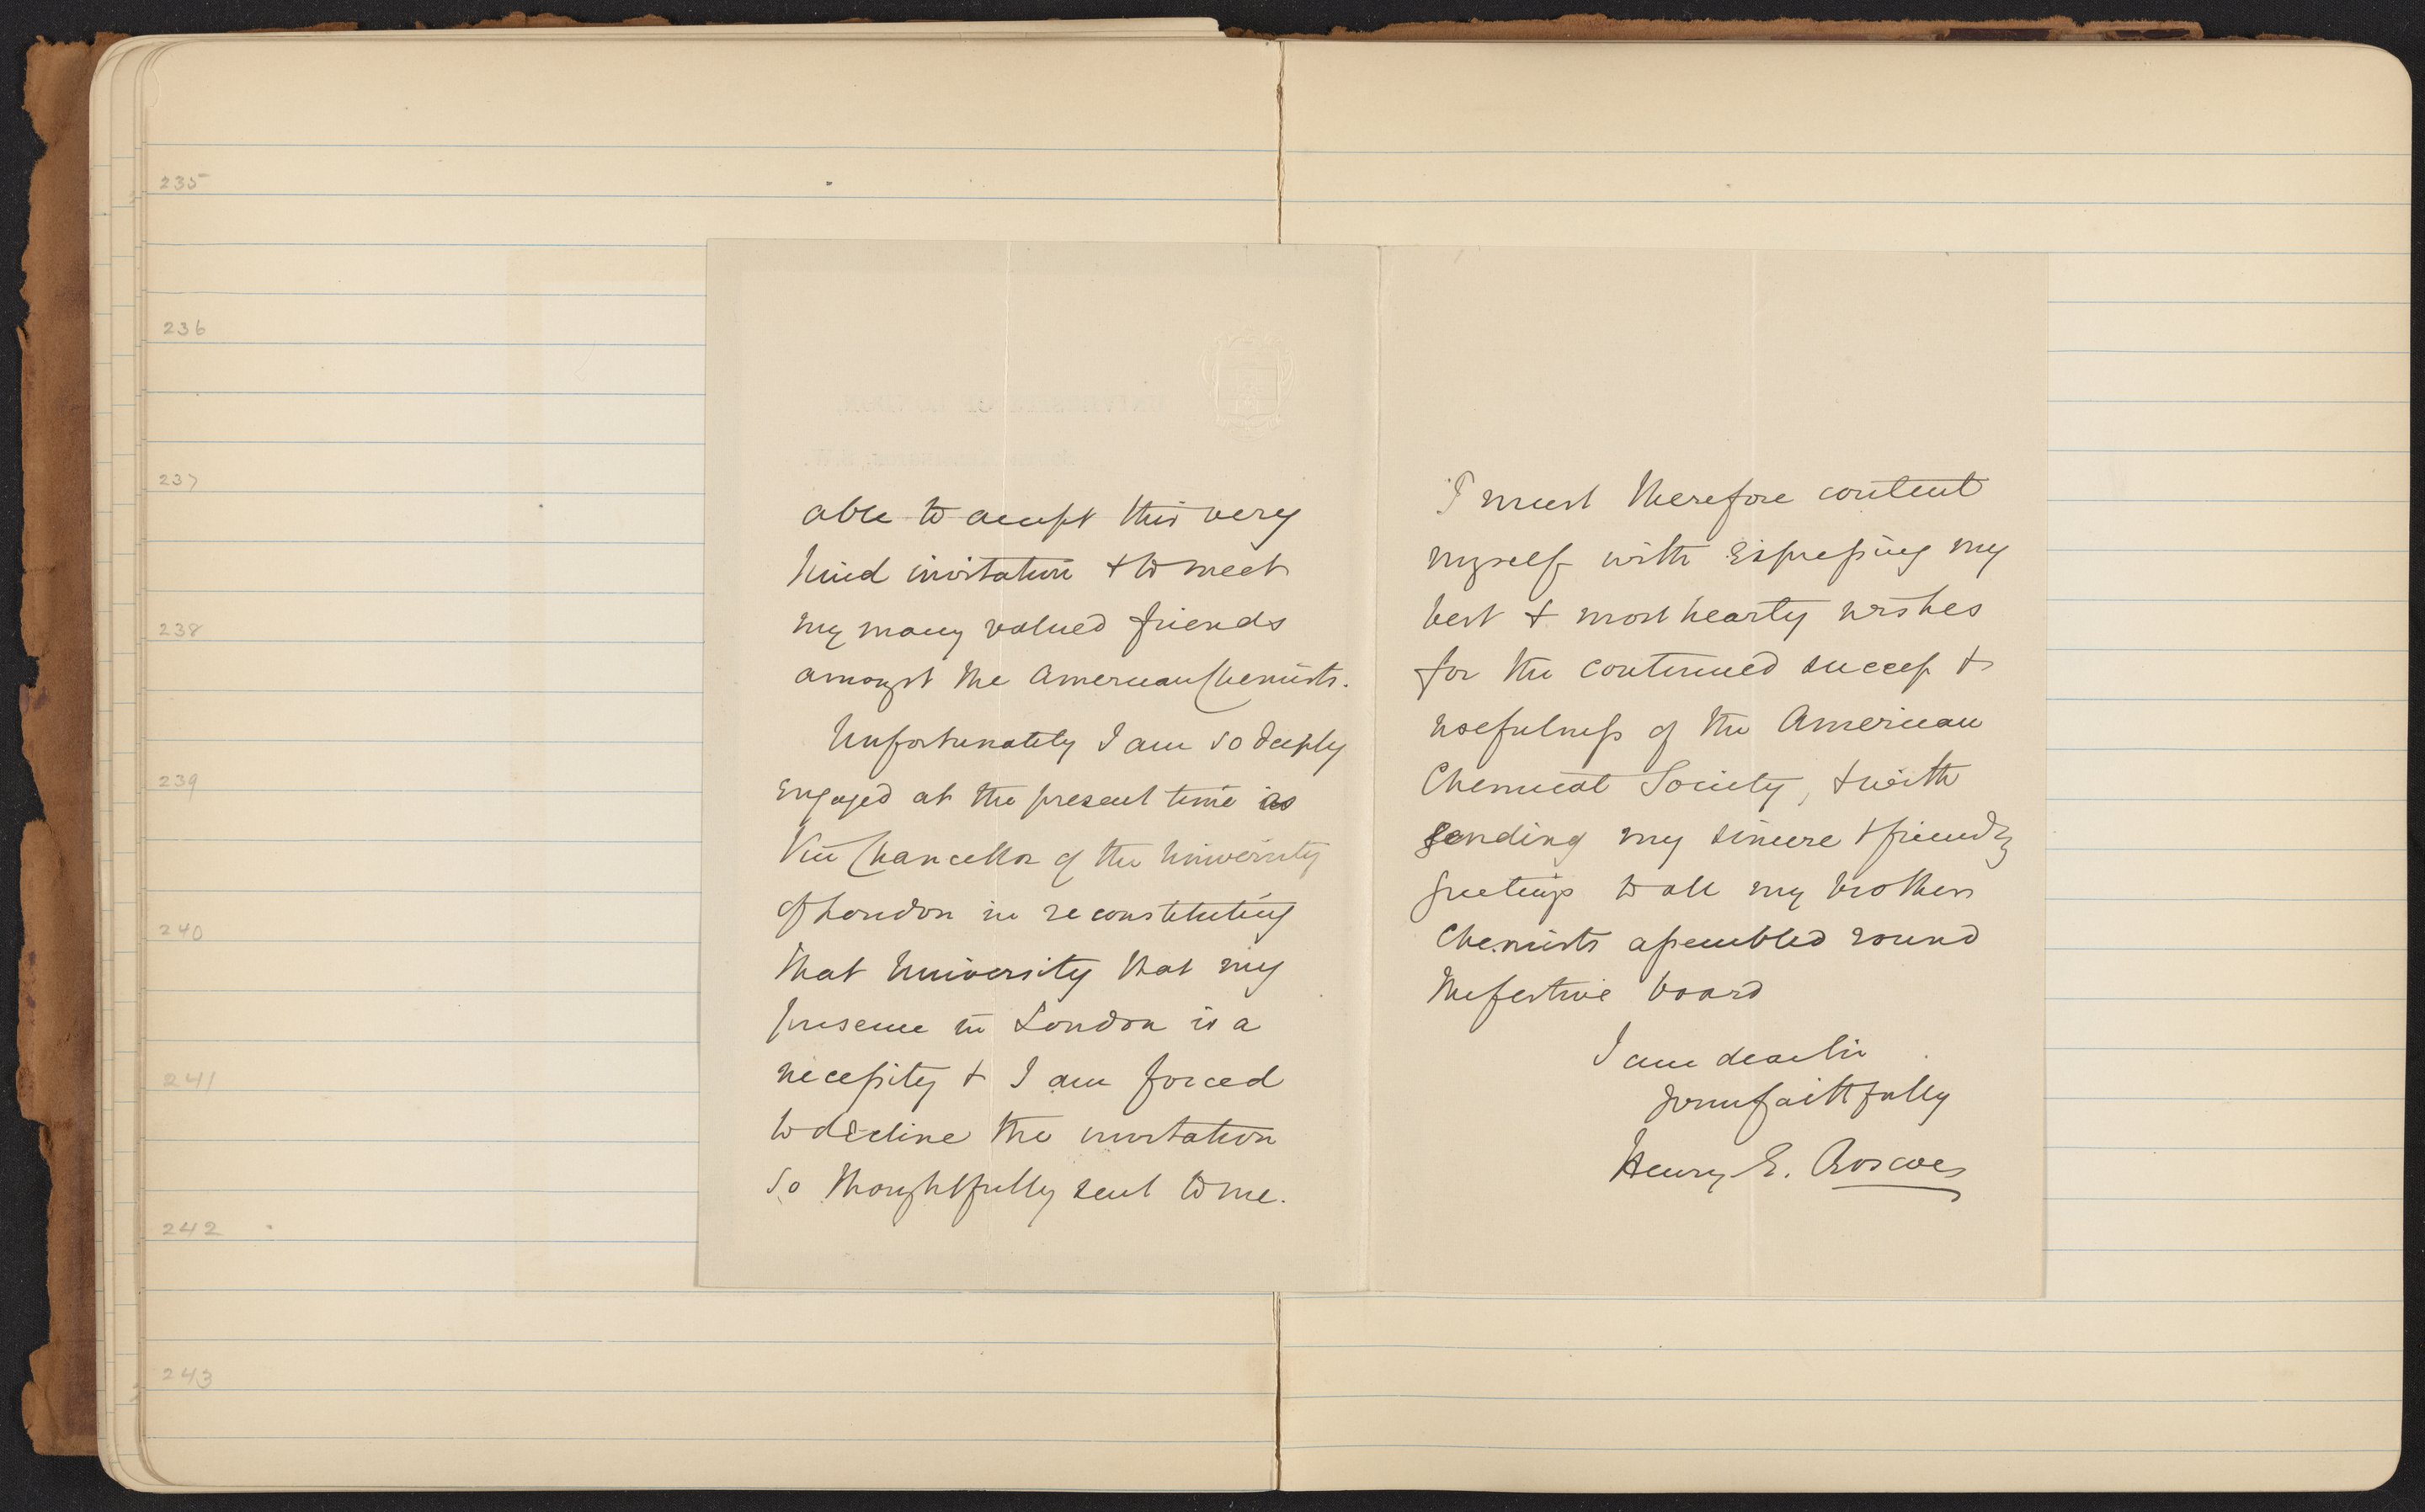 235
236
237
238
239
240
241
242
243
able to accept this very
kind invitation & to meet
my many valued friends
amongst the American Chemists.
Unfortunately I am so deeply
engaged at the present time as
Vice Chancellor of the University
of London in reconstituting
that University that my
presence in London is a
necessity & I am forced
to decline the invitation
so thoughtfully sent to me.
I must therefore content
myself with expressing my
best & most hearty wishes
for the continued success &
usefulness of the American
Chemical Society, & with
sending my sincere & friendly
greetings to all my brother
Chemists assembled round
the festive board
I am dear Sir
Yours faithfully
Henry E. Roscoe